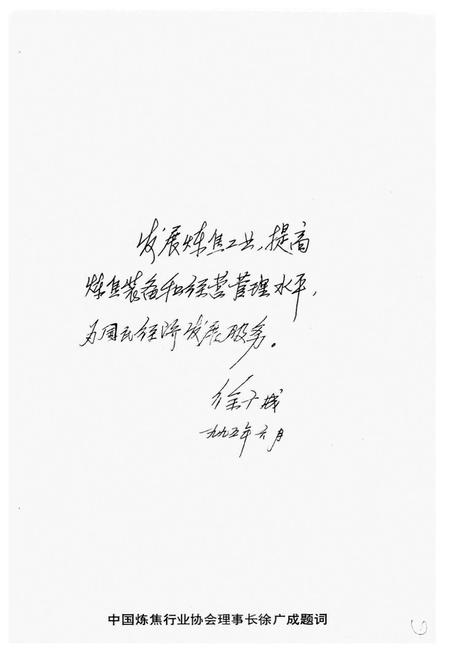 发展炼焦工业，提高
炼焦装备和经营管理水平，
为国民经济发展服务。
徐广成
一九九五年六月
中国炼焦行业协会理事长徐广成题词